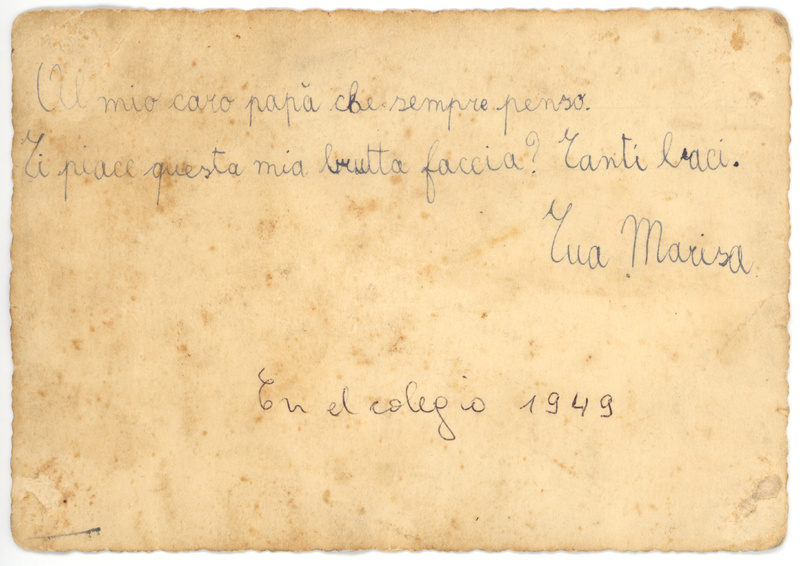 Al mio caro papà che sempre penso.
Ti piace questa mia brutta faccia? Tanti baci.
Tua Marisa
En el colegio 1949